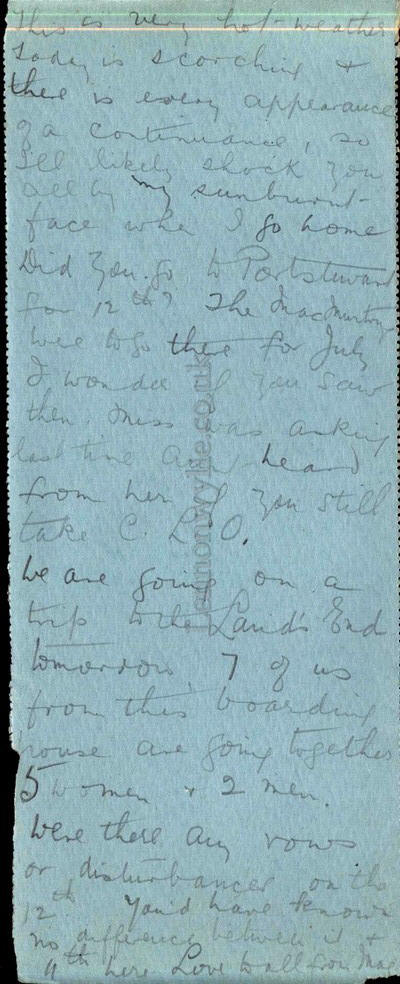 This is very hot weather
Today is scorching &
there is every appearance
of a continuance, so
I'll likely shock you
all by my sunburnt
face when I go home
Did you go to Portstewart
for 12th? The MacMurtrys
were to go there for July
I wonder if you saw
them. Miss was asking
last time Aun heard
from her if you still
take C. L. O.
We are going on a
trip to the Land's End
tomorrow, 7 of us
from this boarding
house are going together
5 women & 2 men.
Were there any rows
or disturbances on the
12th. You'd have known
no difference between it &
11th here Love to all from Mag
lennonwylie.co.uk